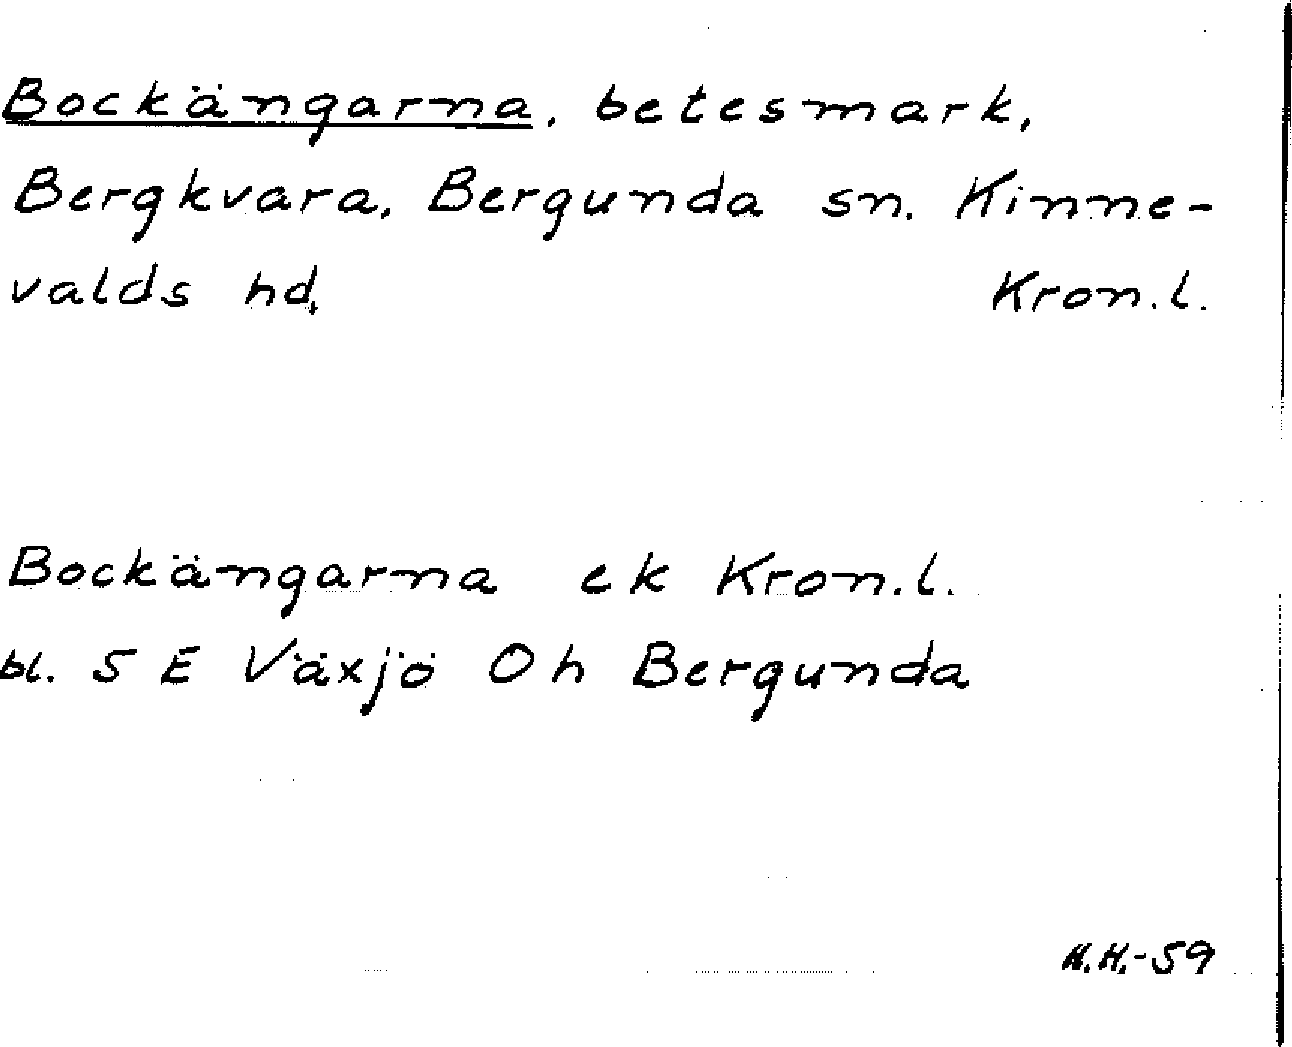 Bockängarna, betesmark,
Bergkvara, Bergunda sn. Kinne-
valds hd, Kron.l.
Bockängarna ek Kron.l.
bl. 5 E Växjö Oh Bergunda
N.H.-59